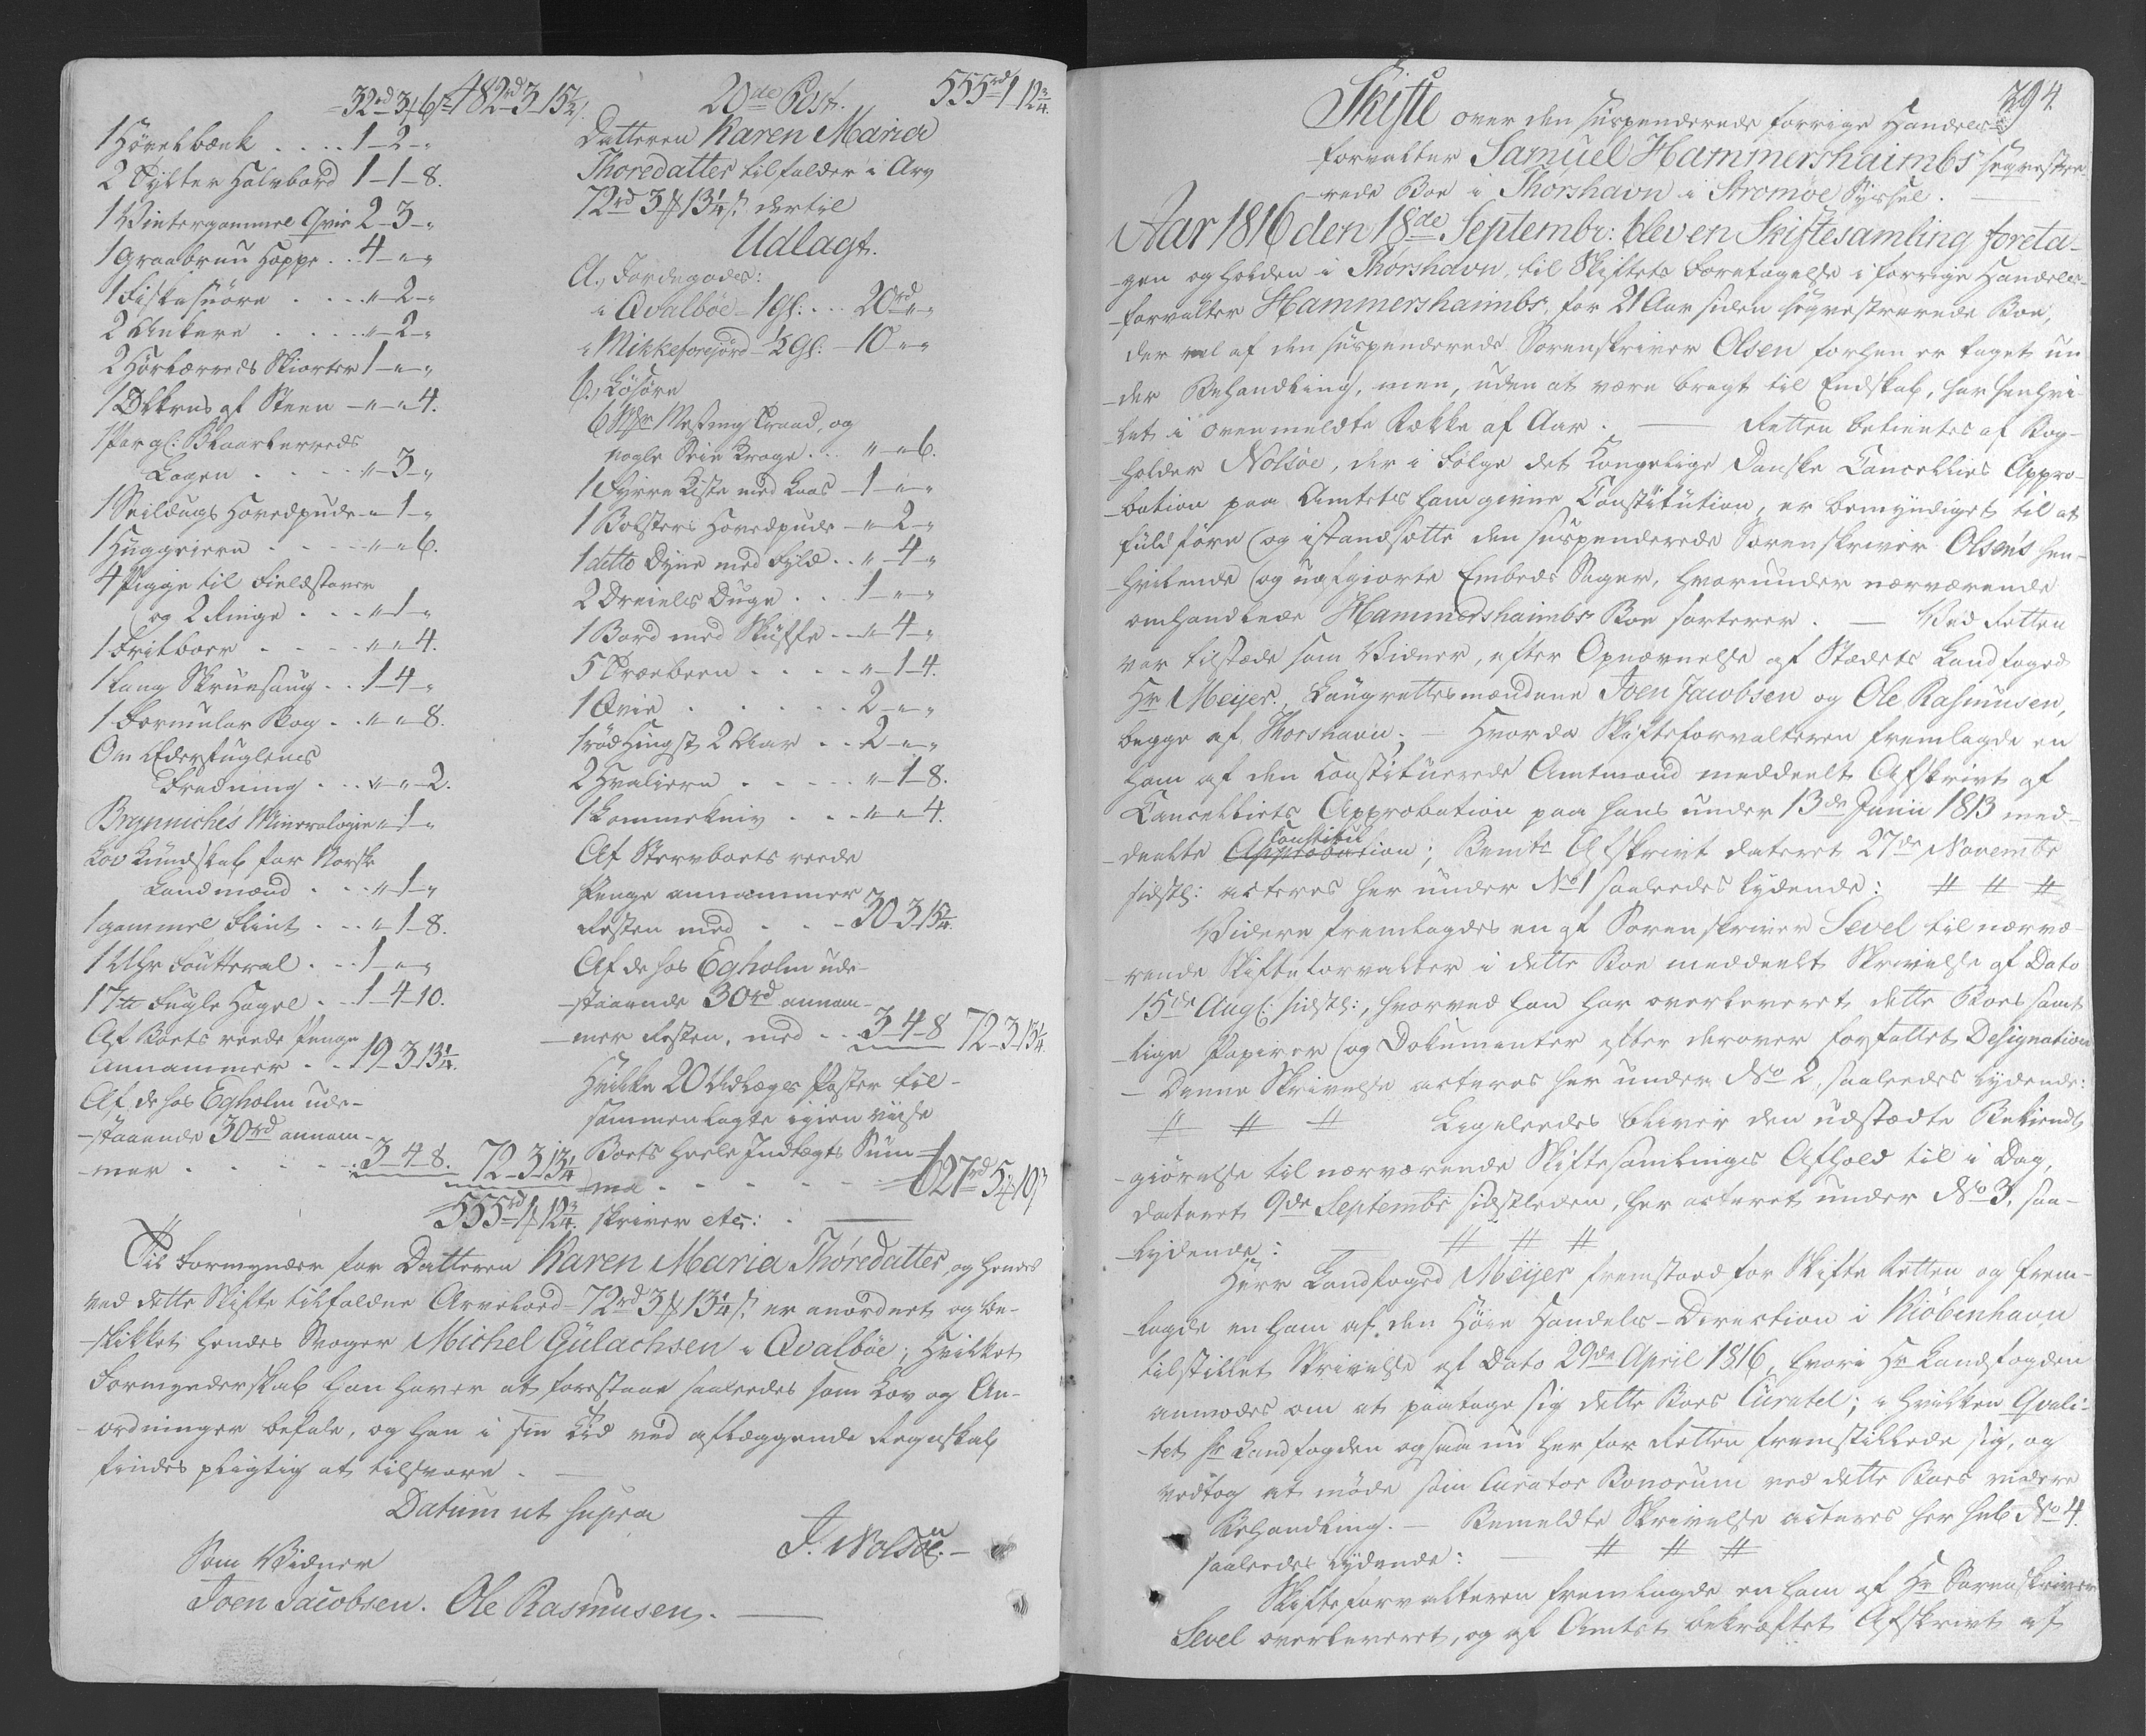 32rd 3 ß 6 482rd 3 15¼
1 Hövelbænk . . . . 1 - 2 - „
2 Tylter Halvbord 1 - 1 - 8.
1 Wintergammel Qvie 2 - 3 - „
1 graabrun Hoppe . . 4 - „ - „
1 Fiskesnöre . . . . „ - 2 - „
2 Ankere . . . . „ - 2 - „
2 Hörlærreds Skiorter 1 - „ - „
1 Ölkrus af Steen - „ - „ 4.
1 Par gl: Blaarlerreds
Lagen . . . . . „ - 3 - „
1 Seildugs Hovedpude - „ 1 - „
1 Huggeiern . . . . „ - „ 6.
4 Pigge til Fieldstaver
og 2 Ringe . . . „ - 1 - „
1 Fritboer . . . . „ - „ 4.
1 lang Skruesaug . . 1 - 4 - „
1 Formular Bog . . „ - „ - 8.
Om Ederfuglenes
Fredning . . . „ - „ - 2.
Brynniches Mineralogie „ - 1 - „
Lov Kundskab for Norske
Landmænd . . . „ - 1 - „
1 gammel Flint . . . „ - 1 - 8.
1 Uhr Foutteral . . . 1 - „ - „
17 ℔ Fugle Hagel . . 1 - 4 - 10.
Af Boets reede Penge
annammer . . 19 - 3 - 13¼.
Af de hos Egholm ude-
-staaende 30rd annam-
-mer . . . . . . 3 - 4 - 8. 72 - 3 - 13¼
555rd 1 ß 12¾.
20de Post. 555rd 1 12¾.
Datteren Karen Maria
Thoredatter tilfalder i Arv
72rd 3 ß 13¼ s. dertil
Udlagt.
A., Jordegodes:
i Qvalböe - 1 Gl: . . . 20rd „ „
i Mikkeforejord - ½ Gl: - 10 „ „
b., Lösöre
6 Messing Traad, og
nogle Seie Krage . . . „ - „ 6.
1 Fyrre Kiste med Laas - 1 - „ - „
1 Bolsters Hovedpude - „ 2 - „
1 detto Dyne med Fyld . . „ 4 - „
2 Dreiels Duge . . . 1 - „ - „
1 Bord med Skuffe . . „ - 4 - „
5 Træebeen . . . . „ - 1 - 4.
1 Qvie . . . . . . 2 - „ - „
1 röd Hingst 2 Aar . . . 2 - „ - „
2 Hvaliern . . . . . „ - 1 - 8.
1 Lommekniv . . . „ - „ 4.
Af Stervboets reede
Penge annammer
Resten med . . . 30 - 3 - 15¼.
Af de hos Egholm ude-
-staaende 30rd annam-
-mer Resten, med . . 3 - 4 - 8 72 - 3 - 13¼.
Hvilke 20 Udlægs Poster til-
sammenlagte igien viise
Boets heele Indtægts Sum-
-ma . . . . . . . 627rd 5 ß 10
skriver etc: .
Til Formynder for Datteren Karen Maria Thoredatter, og hendes
ved dette Skifte tilfaldne Arvelod 72rd 3 ß 13¼ s. er anordnet og be-
-skikket hendes Svoger Michel Gulachsen i Qvalböe; hvilket
Formynderskab han haver at forestaae saaledes som Lov og An-
-ordninger befale, og han i sin Tid ved aflæggende Regnskab
findes pligtig at tilsvare. —
Datum ut supra
J. Nolsöe. —
Som Vidner
Joen Jacobsen. Ole Rasmusen. —
394.
Skifte over den suspenderede forrige Handels-
forvalter Samuel Hammershaimbs seqvestre-
-rede Boe i Thorshavn i Stromöe Syssel. —
Aar 1816 den 18de Septembr: blev en Skiftesamling foreta-
-gen og holden i Thorshavn, til Skiftets Foretagelse i forrige Handels-
-forvalter Hammershaimbs, for 21 Aar siden seqvestrerede Boe,
der vel af den suspenderede Sorenskriver Olsen forhen er taget un-
-der Behandling, men, uden at være bragt til Endskab, har henhvi-
-let i ovenmeldte Række af Aar. — Retten betientes af Bog-
-holder Nolsöe, der i Fölge det Kongelige Danske Cancellies Appro-
-bation paa Amtets ham givne Constitution, er bemyndiget til at
fuldföre og istandsætte den suspenderede Sorenskriver Olsen's hen-
-hvilende og uafgiorte Embeds Sager, hvorunder nærværende
omhandlede Hammershaimbs Boe sorterer. — Ved Retten
var tilstæde som Vidner, efter Opnævnelse af Stædets Landfoged
Hr Meijer, Laugrettesmændene Joen Jacobsen og Ole Rasmusen,
begge af Thorshavn; — Hvorda Skifteforvalteren fremlagde en
ham af den constituerede Amtmand meddeelt Afskrivt af
Cancelliets Approbation paa hans under 13de Junii 1813 med-
-deelte Approbation Constitu; Bemte Afskrivt dateret 27de Novembr
sidstl: acteres her under No 1 saaledes lydende: # # #
Videre fremlagdes en af Sorenskriver Sevel til nærvæ-
-rende Skifteforvalter i dette Boe meddeelt Skrivelse af Dato
15de Augl: sidstl:, hvorved han har overleveret dette Boes samt-
-lige Papirer og Dokumenter efter derover forfattet Designation
- Denne Skrivelse acteres her under No 2, saaledes lydende:
# # # Ligeledes bliver den udstædte Bekiendt-
-giörelse til nærværende Skiftesamlings Afhold til i Dag,
dateret 9de Septembr sidstleden, her acteret under No 3. saa-
-lydende: — # # #
Herr Landfoged Meijer fremstoed for Skifte Retten og frem-
-lagde en ham af den Höie Handels-Direction i Kiöbenhavn
tilstillet Skrivelse af Dato 29de April 1816, hvori Hr Landfogden
anmodes om at paatage sig dette Boes Curatel; i hvilken Qvali-
-tet Hr Landfogden ogsaa nu her for Retten fremstillede sig, og
vedtog at möde som Curator Bonorum ved dette Boes videre
Behandling. — Bemeldte Skrivelse acteres her sub No 4.
saaledes lydende: — # # #
Skifteforvalteren fremlagde en ham af Hr Sorenskriver
Sevel overleveret, og af Amtet bekræftet Afskrivt af